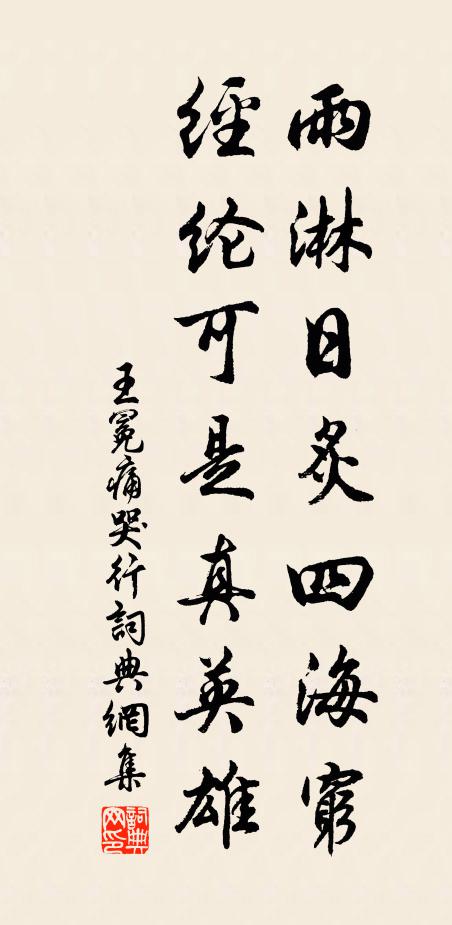 雨淋日炙四海窮
經纶可是真英雄
王冕痛哭行詞典網集
詞典網印